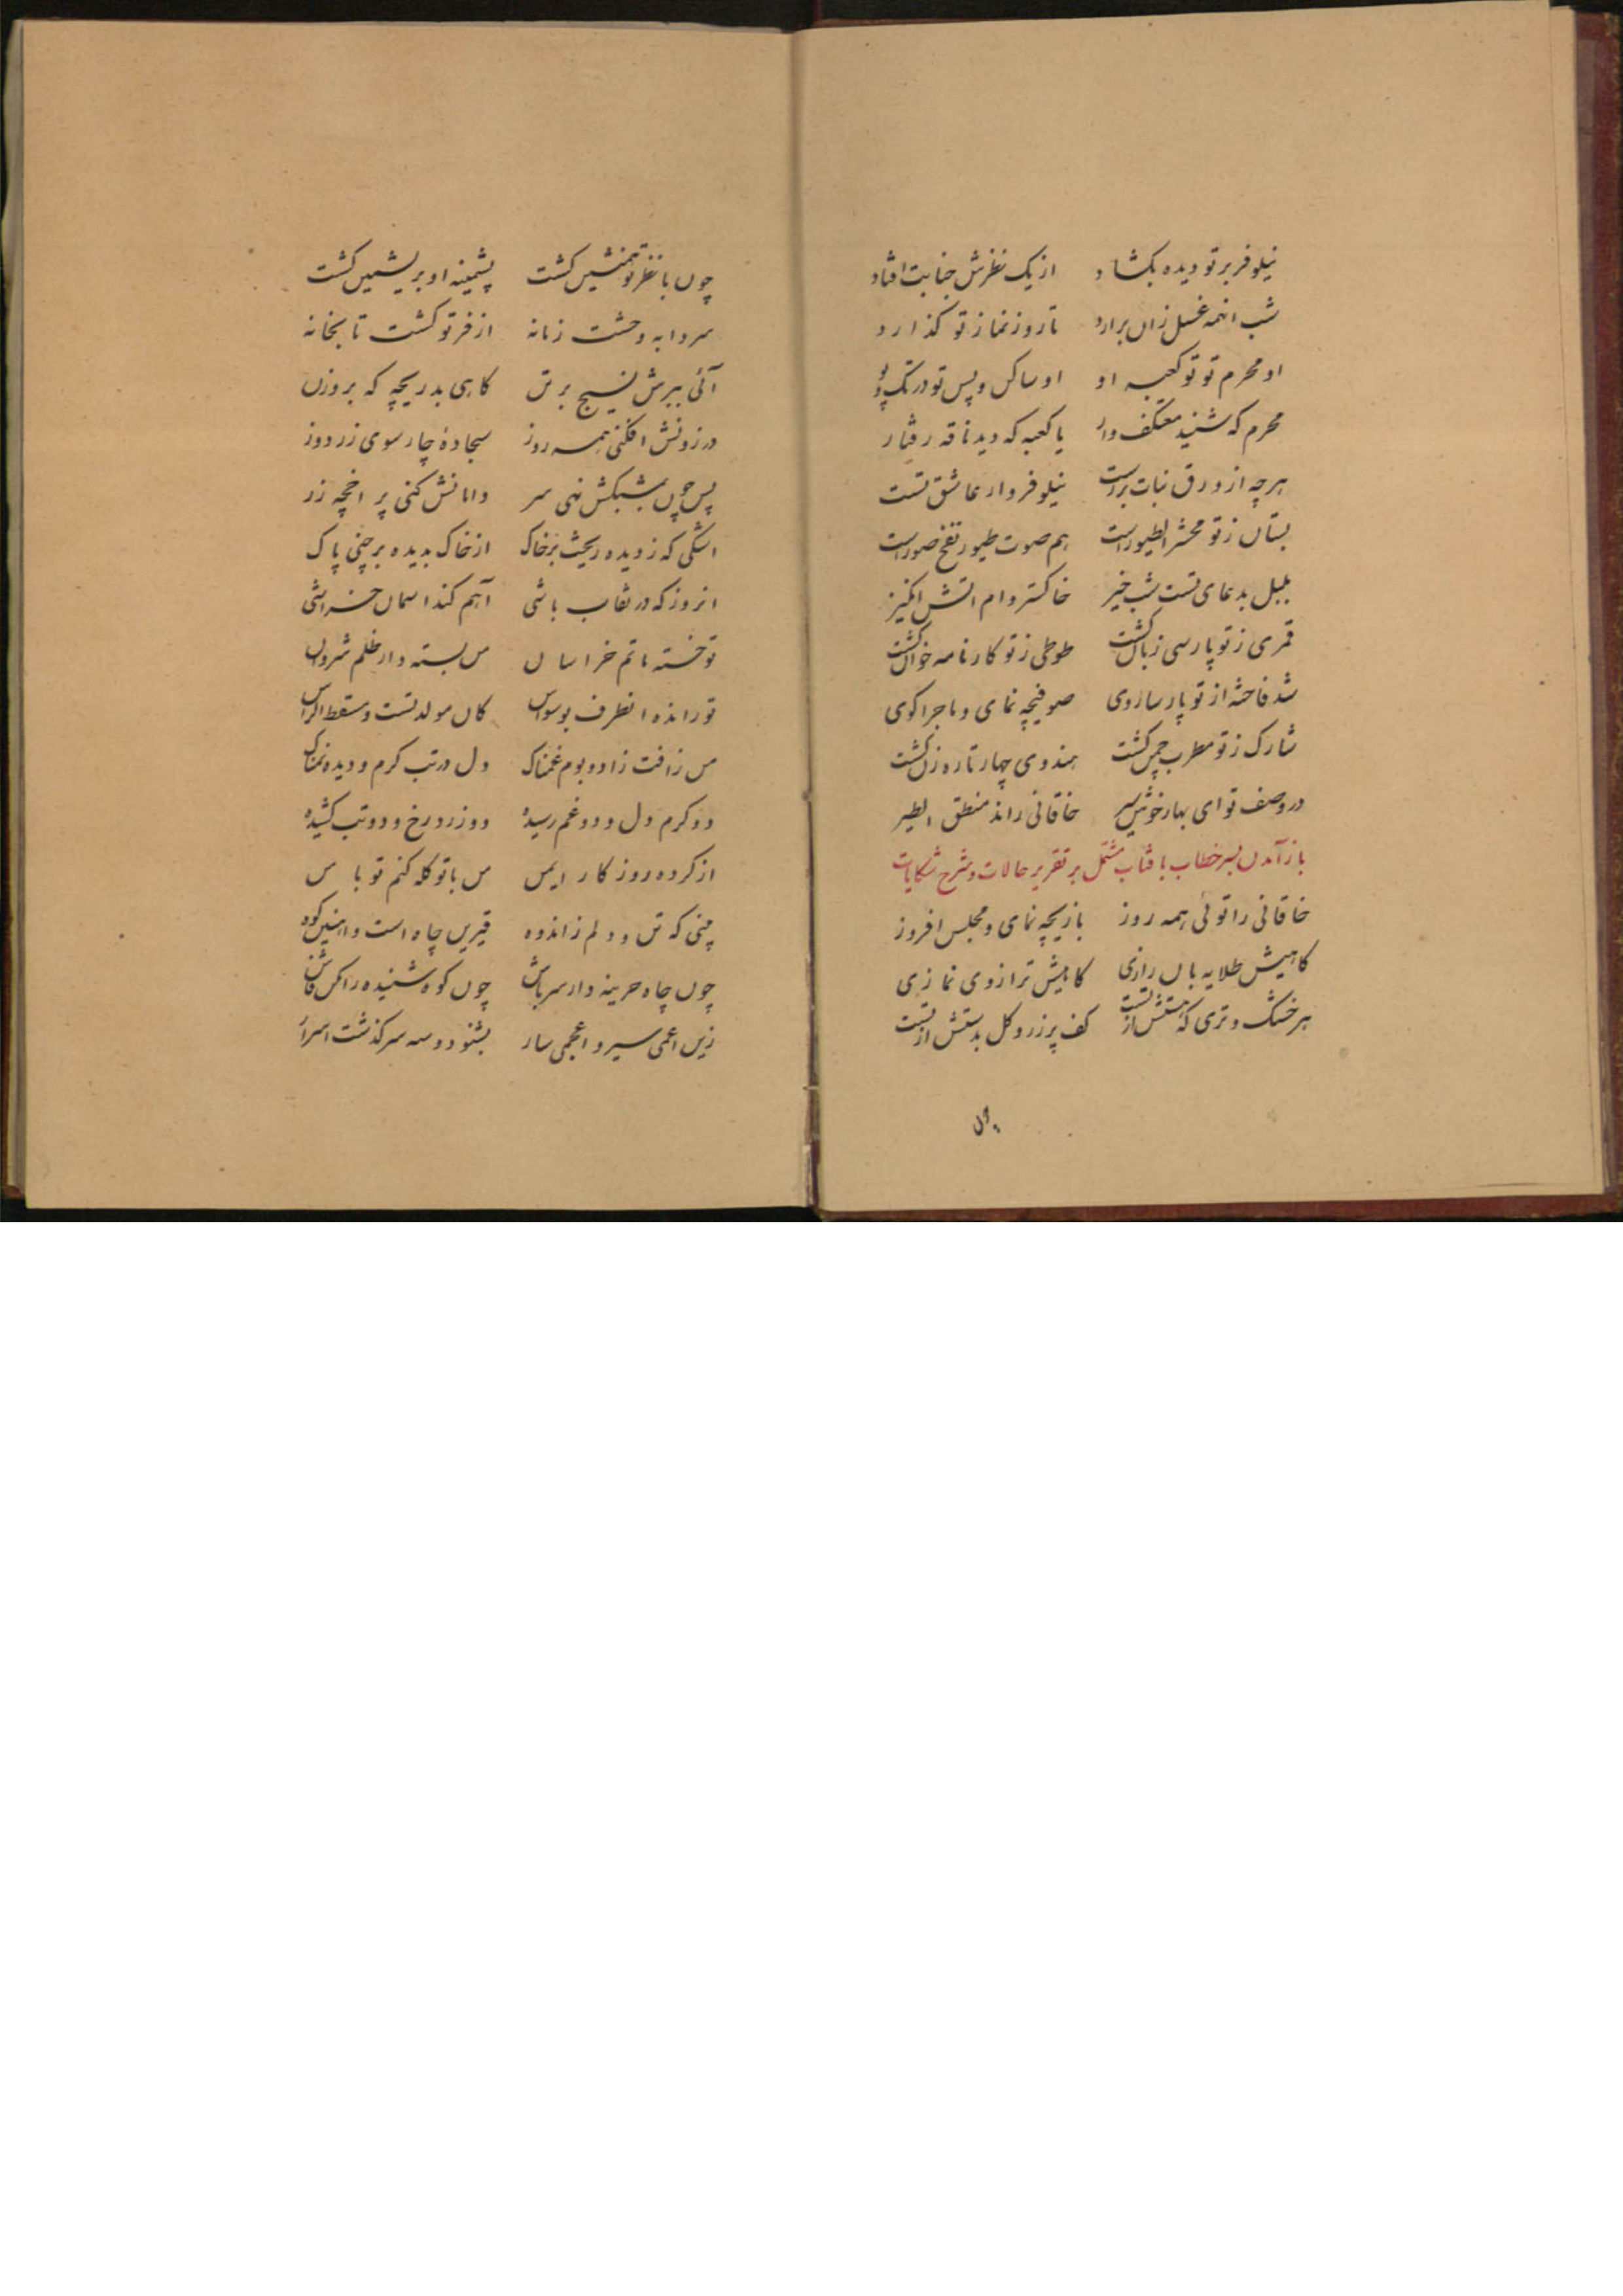 نیلوفر بر تو دیده بکشاد از یک نظرش جنابت افتاد
شب انهمه غسل زان برارد تا روز نماز تو گذارد
او محرم تو تو کعبه او او ساکن و پس تو در تک و پو
محرم که شنید معتکف وار یا کعبه که دید ناقه رفتار
هرچه از ورق نبات برست نیلوفروار عاشق تست
بستان ز تو محشر الطیورست هم صوت طیور نفخ صورست
بلبل بدعای تست شب خیز خاکستروام اتش انگیز
قمری ز تو پارسی زبان کشت طوطی ز تو کارنامه خوان کشت
شد فاخته از تو پارسا روی صوفیچه نمای و ماجرا کوی
شارک ز تو مطرب چمن کشت هندوی چهار تاره زن کشت
در وصف تو ای بهار خوش سیر خاقانی راند منطق الطیر
باز آمدن بسر خطاب بافتاب مشتمل بر تقریر حالات و شرح شکایات
خاقانی را توئی همه روز بازیچه نمای و مجلس افروز
کاهیش طلایه بان رازی کاهیش ترازوی نمازی
هر خشک و تری که هستش از تست کف پر زر و کل بدستش از تست
چون
چون با نظر تو همنشین کشت پشمینه او بریشمین کشت
سردابه وحشت زمانه از فر تو کشت تابخانه
آئی ببرش نسیج بر تن کاهی بدریچه که بروزن
درزونش افکنی همه روز سجادهٔ چارسوی زردوز
پس چون بشبکش نهی سر دامانش کنی پر اخچه زر
اشکی که ز دیده ریخت بر خاک از خاک بدیده برچنی پاک
انروز که در نقاب باشی آهم کند اسمان خراشی
تو خسته ماتم خراسان من بسته دار ظلم شروان
تو رانده انطرف بوسواس کان مولد تست و مسقط الراس
من زافت زاد و بوم غمناک دل در تب کرم و دیده نمناک
دو کرم دل و دو غم رسیده دو زرد رخ و دو تب کشیده
از کرده روزکار ایمن من با تو کله کنم تو با من
بینی که تن و دلم ز اندوه قیرین چاه است و اهنین کوه
چون چاه خزینه دار سر باش چون کوه شنیده را مکن فاش
زین اعمی سیر و اعجمی سار بشنو دو سه سرکذشت اسرار